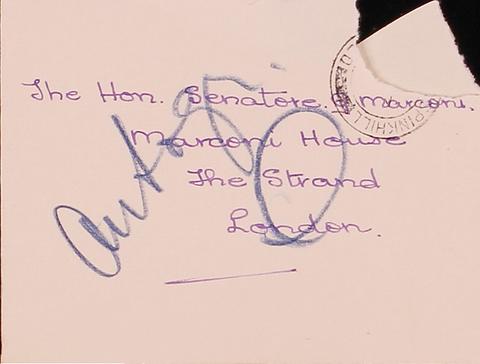 The Hon. Senatore. G Marconi.
Marconi House
The Strand
London.
PINKHILL